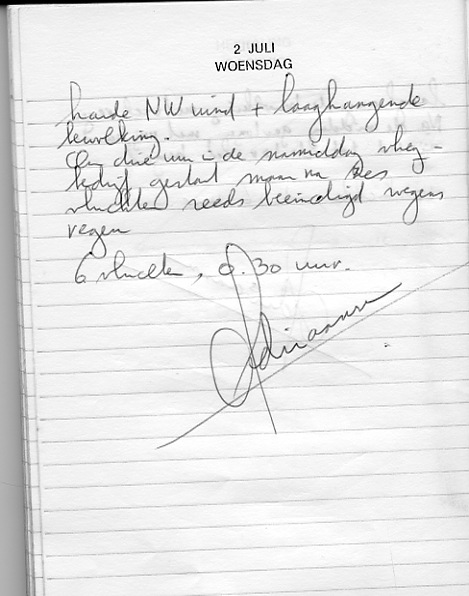 2 JULI
WOENSDAG
harde NW wind + laaghangende
bewolking.
Om drie uur in de namiddag vlieg-
bedrijf gestart maar na zes
vluchten reeds beeindigd wegens
regen
6 vluchten, 0.30 uur.
Adriaansen